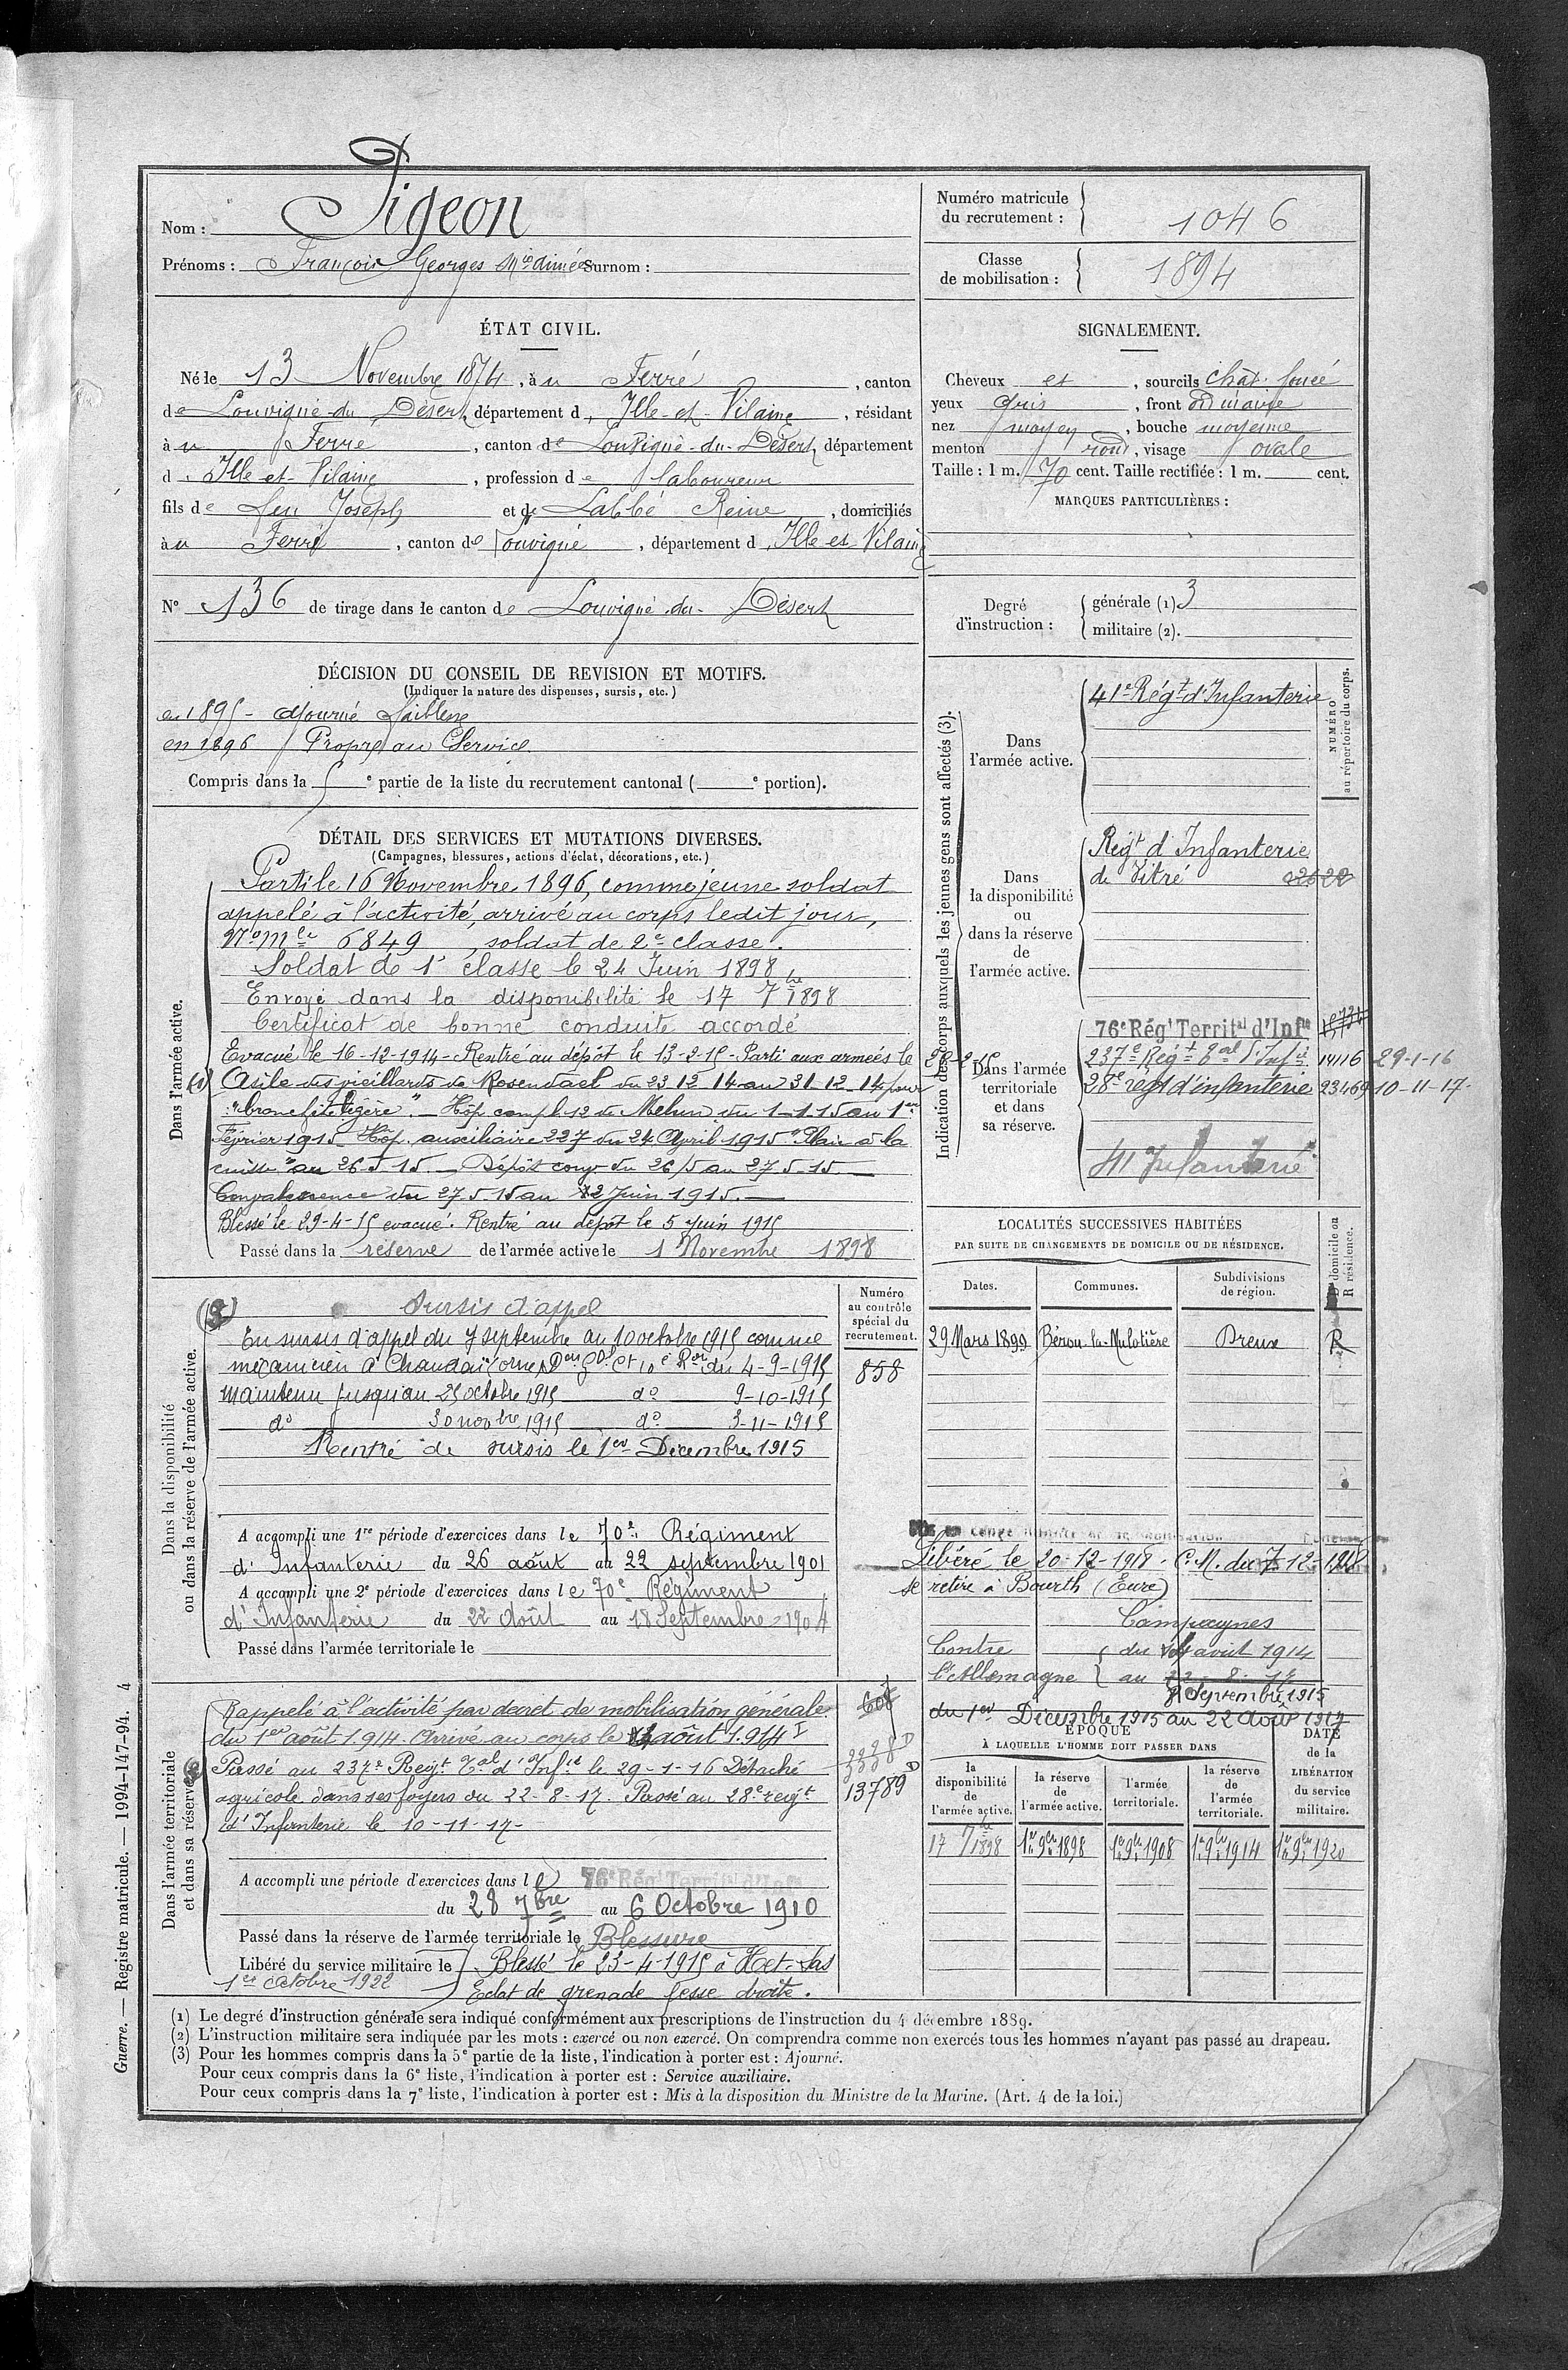 Nom : Pigeon
Prénoms : François Georges Surnom :
Numéro matricule du recrutement : 1046
Classe de mobilisation : 1894
ÉTAT CIVIL.
Né le 13 Novembre 1874, à u Ferré, canton
de Louvigné-du-Désert, département d'Ille-et-Vilaine, résidant
à u Ferré, canton de Louvigné-du-Désert, département
d'Ille-et-Vilaine, profession de laboureur
fils de feu Joseph et de Labbé Reine, domiciliés
à u Ferré, canton de Louvigné, département d'Ille-et-Vilaine
N° 136 de tirage dans le canton de Louvigné-du-Désert
SIGNALEMENT.
Cheveux et, sourcils chat. foncé
yeux gris, front ordinaire
nez moyen, bouche moyenne
menton rond, visage ovale
Taille : 1 m. 70 cent. Taille rectifiée : 1 m. cent.
MARQUES PARTICULIÈRES :
Degré d'instruction : générale (1) 3
militaire (2).
DÉCISION DU CONSEIL DE REVISION ET MOTIFS.
(Indiquer la nature des dispenses, sursis, etc.)
en 1895 - ajourné faiblesse
en 1896 Propre au Service
Compris dans la e partie de la liste du recrutement cantonal ( e portion).
DÉTAIL DES SERVICES ET MUTATIONS DIVERSES.
(Campagnes, blessures, actions d'éclat, décorations, etc.)
Dans l'armée active.
Parti le 16 Novembre 1896, comme jeune soldat
appelé à l'activité, arrivé au corps ledit jour,
N° Mle 6849, soldat de 2e classe.
Soldat de 1e classe le 24 Juin 1898
Envoyé dans la disponibilité le 17 7bre 1898
Certificat de bonne conduite accordé
Evacué le 16-12-1914 - Rentré au dépôt le 13-2-15 - Parti aux armées le 22-2-15
Asile des vieillards de Rosendael du 23 12 14 au 31-12-14 pour
"bronchite légère" - Hôp. compl. 12 de Melun du 1-1-15 au 1er
Février 1915 Hôp. auxiliaire 227 du 24 Avril 1915 "Plaie à la
cuisse" au 26-5-15 - Dépôt conv. du 26/5 au 27-5-15
Convalescence du 27-5-15 au 2 Juin 1915.
Blessé le 29-4-15 evacué. Rentré au dépôt le 5 Juin 1915
Passé dans la réserve de l'armée active le 1 Novembre 1898
Indication des corps auxquels les jeunes gens sont affectés (3).
NUMÉRO au répertoire du corps.
Dans l'armée active.
41e Régt d'Infanterie
Dans la disponibilité ou dans la réserve de l'armée active.
Régt d'Infanterie
de Vitré
Dans l'armée territoriale et dans sa réserve.
76e Régt Territal d'Infie
237e Régt Tal d'Infie 14116 29-1-16
28e regt d'infanterie 23469 10-11-17.
41 Infanterie
LOCALITÉS SUCCESSIVES HABITÉES
PAR SUITE DE CHANGEMENTS DE DOMICILE OU DE RÉSIDENCE.
Dates. Communes. Subdivisions de région. D domicile ou R résidence.
29 Mars 1899 Bérou-la-Mulotière Dreux R
Dans la disponibilité ou dans la réserve de l'armée active.
Numéro au contrôle spécial du recrutement.
858
Sursis d'appel
En sursis d'appel du 7 septembre au 10 octobre 1915 comme
mécanicien à Chandai (Orne) Don du 4-9-1915
maintenu jusqu'au 25 octobre 1915 do 9-10-1915
do 30 novbre 1915 do 3-11-1915
Rentré de sursis le 1er Decembre 1915
A accompli une 1re période d'exercices dans le 70e Régiment
d'Infanterie du 26 août au 22 septembre 1901
A accompli une 2e période d'exercices dans le 70e Régiment
d'Infanterie du 22 Août au 18 Septembre 1904
Passé dans l'armée territoriale le
Libéré le 20-12-1918 - C.M. du 7-12-1918
se retire à Bourth (Eure)
Campagnes
Contre l'Allemagne du 14 août 1914
au 22-8-17
7 Septembre 1915
du 1er Décembre 1915 au 22 Août 1917
Dans l'armée territoriale et dans sa réserve.
Rappelé à l'activité par decret de mobilisation générale
du 1er août 1914. Arrivé au corps le août 1914
Passé au 237e Regt Tal d'Infie le 29-1-16 Détaché
agricole dans ses foyers du 22-8-17. Passé au 28e regt
d'Infanterie le 10-11-17-
608
13789
A accompli une période d'exercices dans le 76e Régt Territal d'Infie
du 28 7bre au 6 Octobre 1910
Passé dans la réserve de l'armée territoriale le
Blessure
Libéré du service militaire le
1er Octobre 1922
Blessé le 23-4-1915 à Het-Sas
Eclat de grenade fesse droite.
ÉPOQUE
À LAQUELLE L'HOMME DOIT PASSER DANS
la disponibilité de l'armée active. la réserve de l'armée active. l'armée territoriale. la réserve de l'armée territoriale. DATE de la LIBÉRATION du service militaire.
17 7bre 1898 1er 9bre 1898 1er 9bre 1908 1er 9bre 1914 1er 9bre 1920
(1) Le degré d'instruction générale sera indiqué conformément aux prescriptions de l'instruction du 4 décembre 1889.
(2) L'instruction militaire sera indiquée par les mots : exercé ou non exercé. On comprendra comme non exercés tous les hommes n'ayant pas passé au drapeau.
(3) Pour les hommes compris dans la 5e partie de la liste, l'indication à porter est : Ajourné.
Pour ceux compris dans la 6e liste, l'indication à porter est : Service auxiliaire.
Pour ceux compris dans la 7e liste, l'indication à porter est : Mis à la disposition du Ministre de la Marine. (Art. 4 de la loi.)
Guerre. — Registre matricule. — 1994-147-94. 4